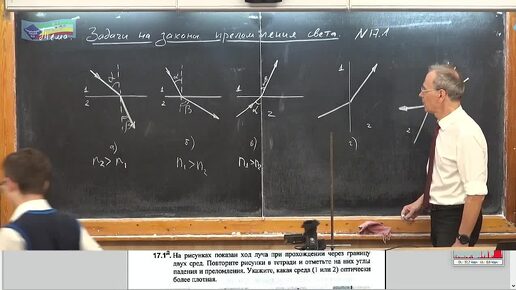 Тема: Задачи на законы преломления света. N17.1
1 2 α β
1 2 α β
1 2 α β
1 2
2
а) б) в) г)
n₂ > n₁ n₁ > n₂ n₁ > n₂
17.1ᵃ. На рисунках показан ход луча при прохождении через границу
двух сред. Повторите рисунки в тетради и отметьте на них углы
падения и преломления. Укажите, какая среда (1 или 2) оптически
более плотная.